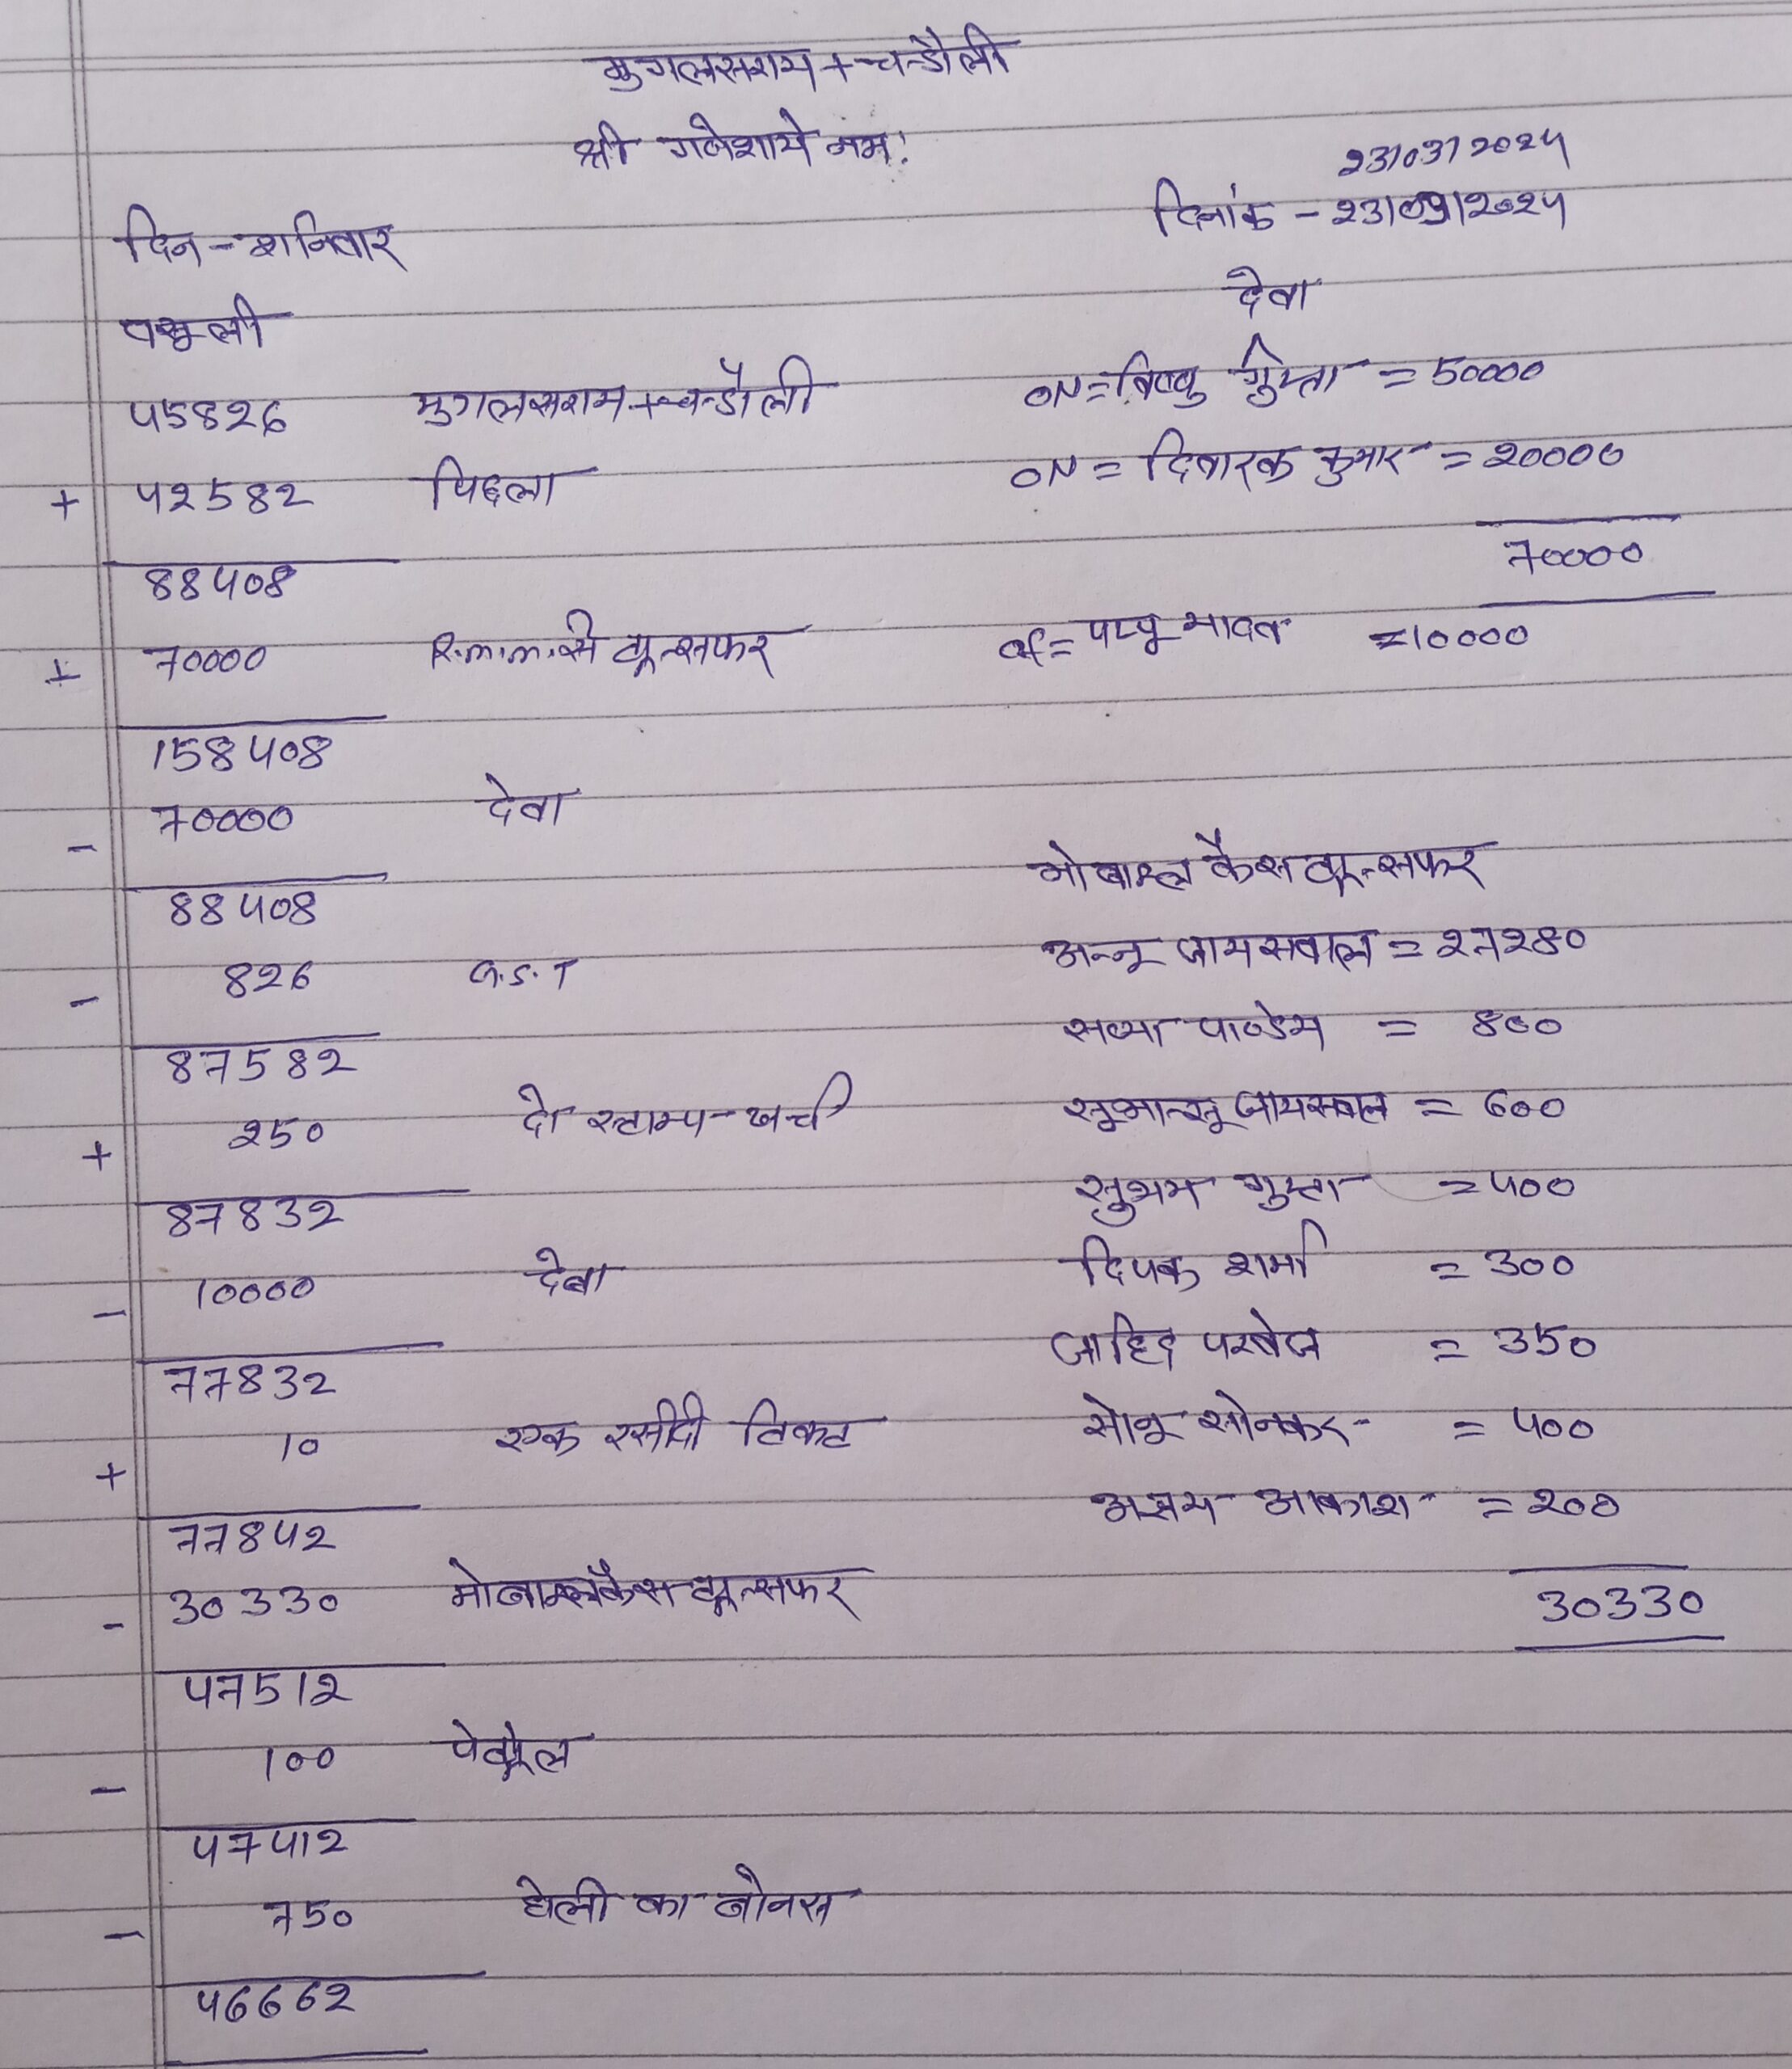 मुगलसराय + चन्दौली
श्री गणेशाये नमः
23/03/2024
दिन - शनिवार
दिनांक - 23/03/2024
वसूली
देवा
45826 मुगलसराय + चन्दौली
ON = विष्णु गुप्ता = 50000
+ 42582 पिछला
ON = दिवारक कुमार = 20000
88408
70000
+ 70000 R.m.m. से ट्रान्सफर
of = पप्पू यादव = 10000
158408
- 70000 देवा
88408
मोबाइल कैस ट्रान्सफर
- 826 G.S.T
अन्नू जायसवाल = 27280
87582
सत्या पाण्डेय = 800
+ 250 दो स्टाम्प खर्च
सुभान्सू जायसवाल = 600
87832
सुभम गुप्ता = 400
- 10000 देवा
दिपक शर्मा = 300
77832
जाहिद परवेज = 350
+ 10 एक रसीदी टिकट
सोनू सोनकर = 400
77842
अजय आकाश = 200
- 30330 मोबाइल कैस ट्रान्सफर
30330
47512
- 100 पेट्रोल
47412
- 750 होली का बोनस
46662